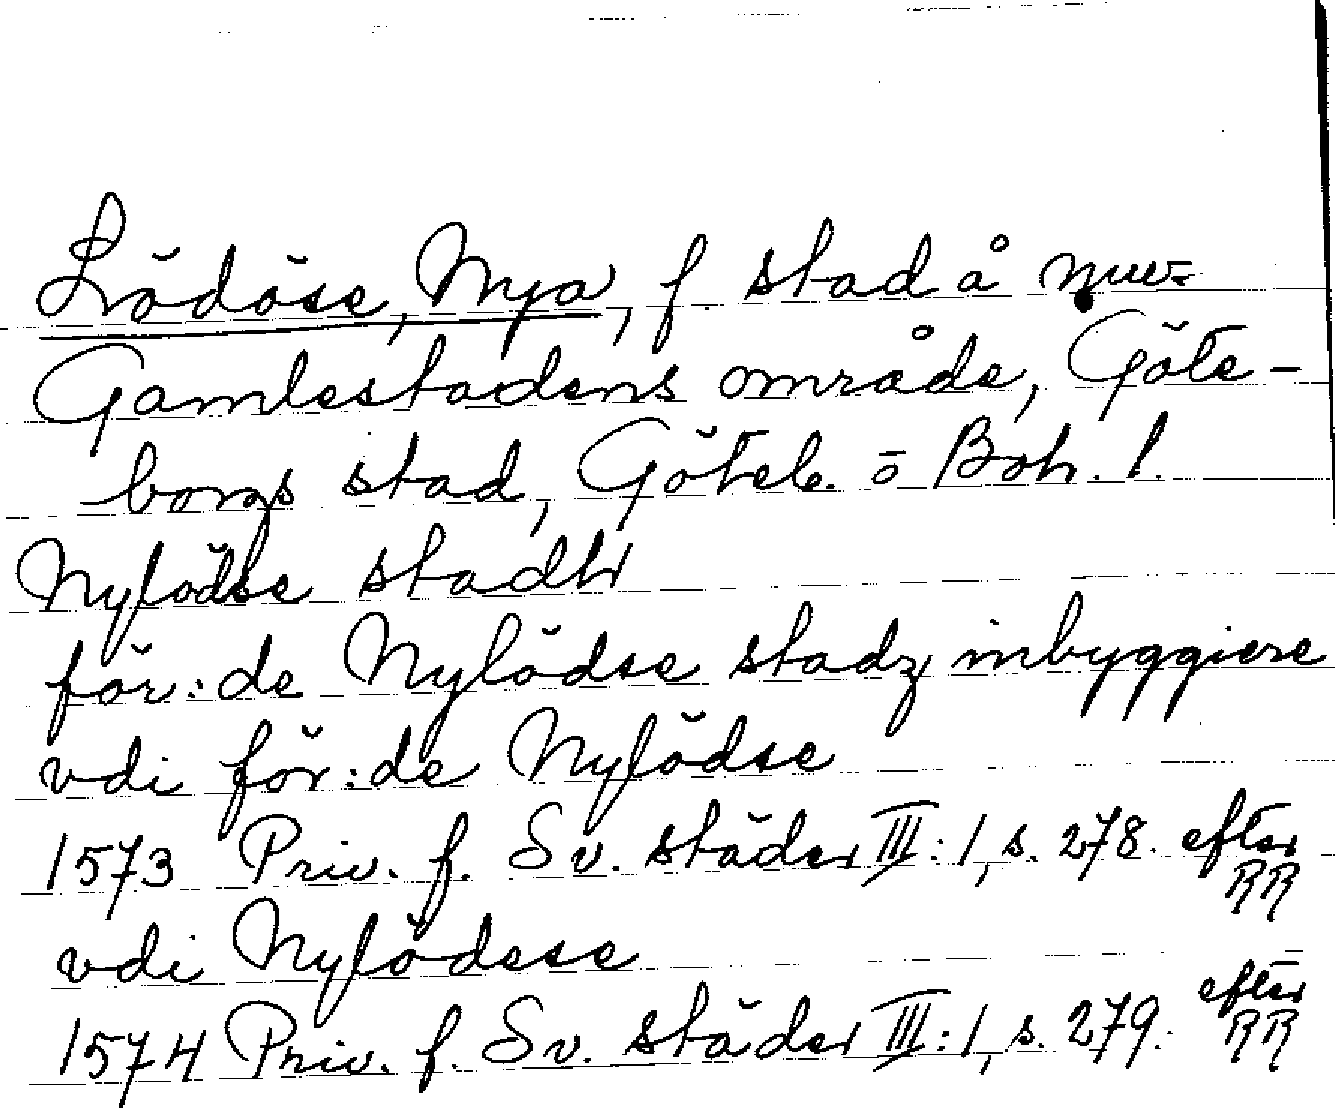 Lödöse, Nya, f. stad å nuv.
Gamlestadens område, Göte-
borgs stad, Göteb. o Boh. l.
Nylödse stadh
för:de Nylödse stadz inbyggiere
vdi för:de Nylödse
1573 Priv. f. Sv. städer III:1, s. 278. efter RR
vdi Nylödese
1574 Priv. f. Sv. städer III:1, s. 279. efter RR